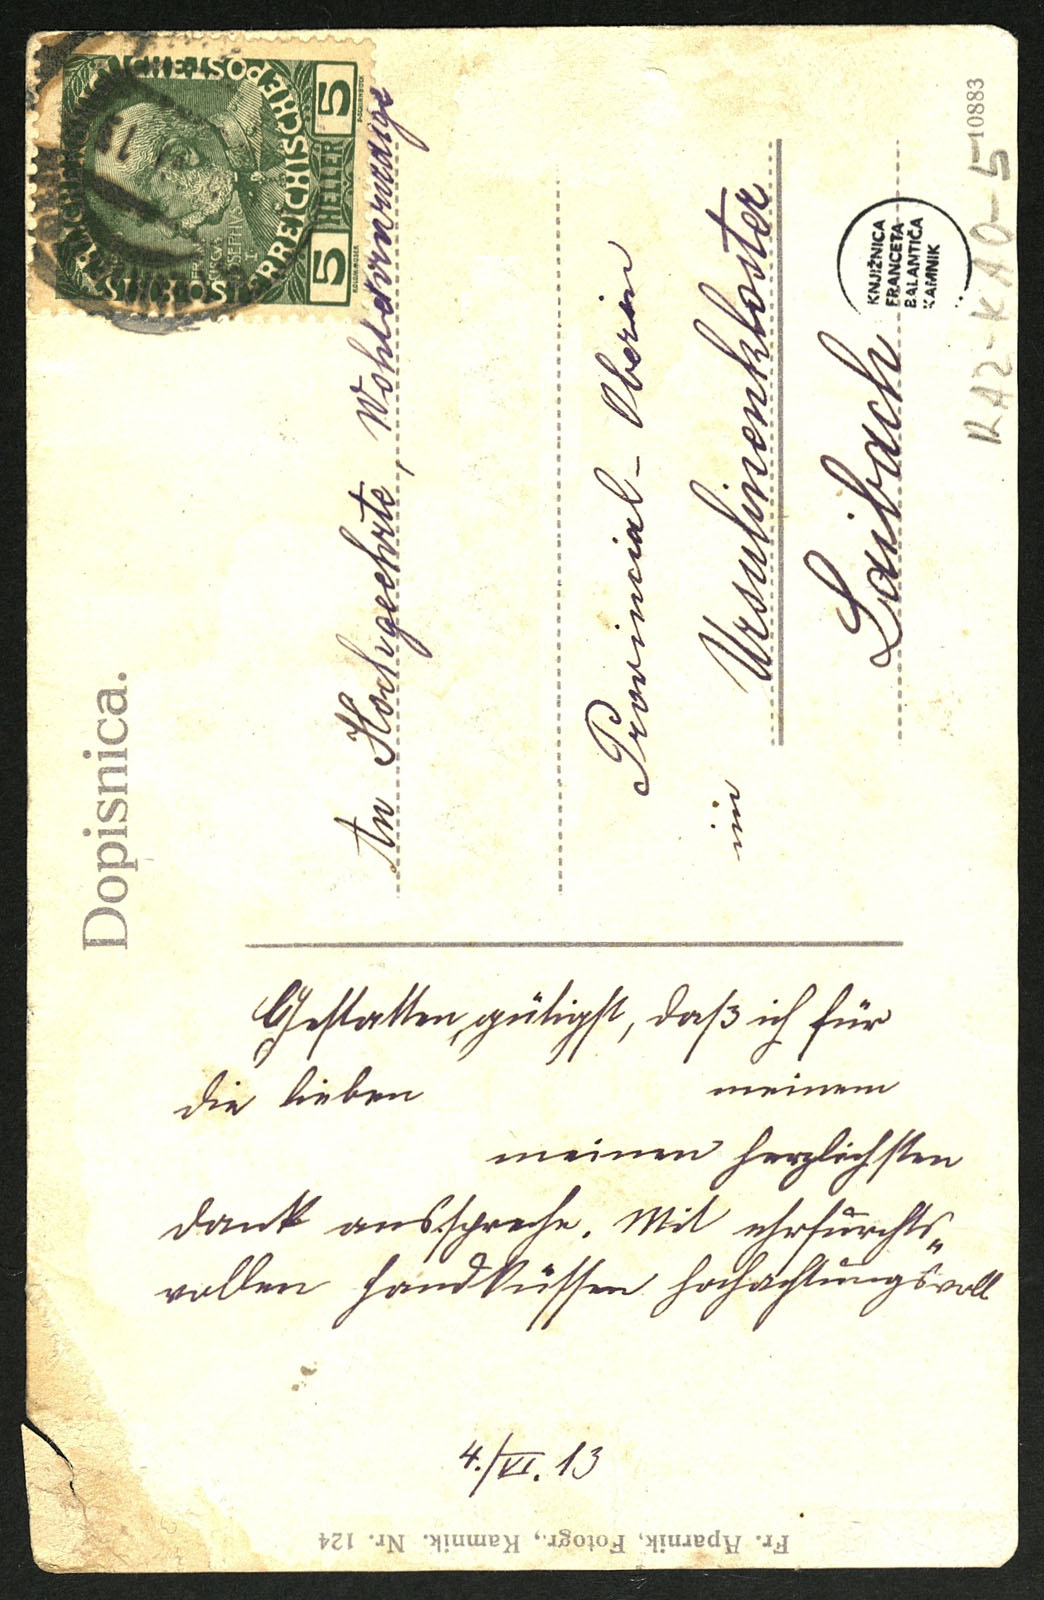 Dopisnica.
KAISERLICHE KÖNIGLICHE ÖSTERREICHISCHE POST
5 HELLER 5
An Hochgeehrte, Wohlehrwürdige
Provincial-Oberin
im Ursulinenkloster
Laibach
KNJIŽNICA
FRANCETA
BALANTIČA
KAMNIK
10883
RAZ-KAO-5
Gestatten gütigst, daß ich für
die lieben meinem
meinen herzlichsten
Dank ausspreche. Mit ehrfurchts„
vollen Handküssen hochachtungsvoll
4./VI. 13
Fr. Aparnik, Fotogr., Kamnik. Nr. 124